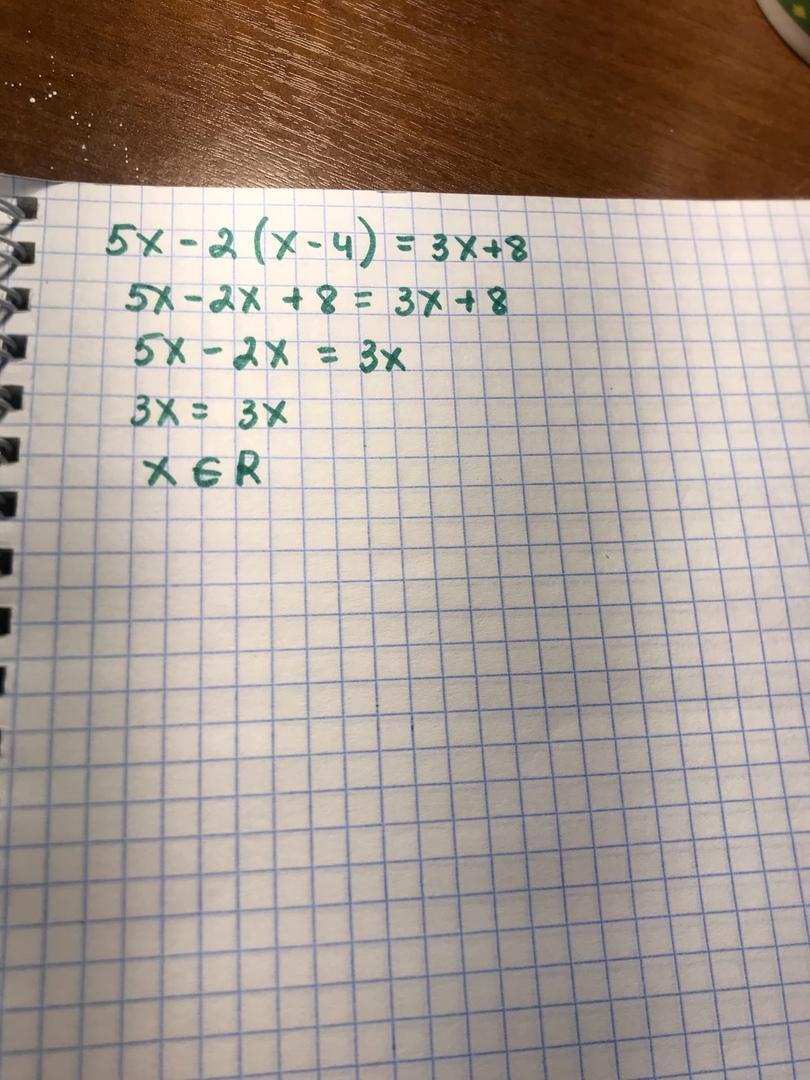 5x - 2 (x - 4) = 3x + 8
5x - 2x + 8 = 3x + 8
5x - 2x = 3x
3x = 3x
x ∈ R